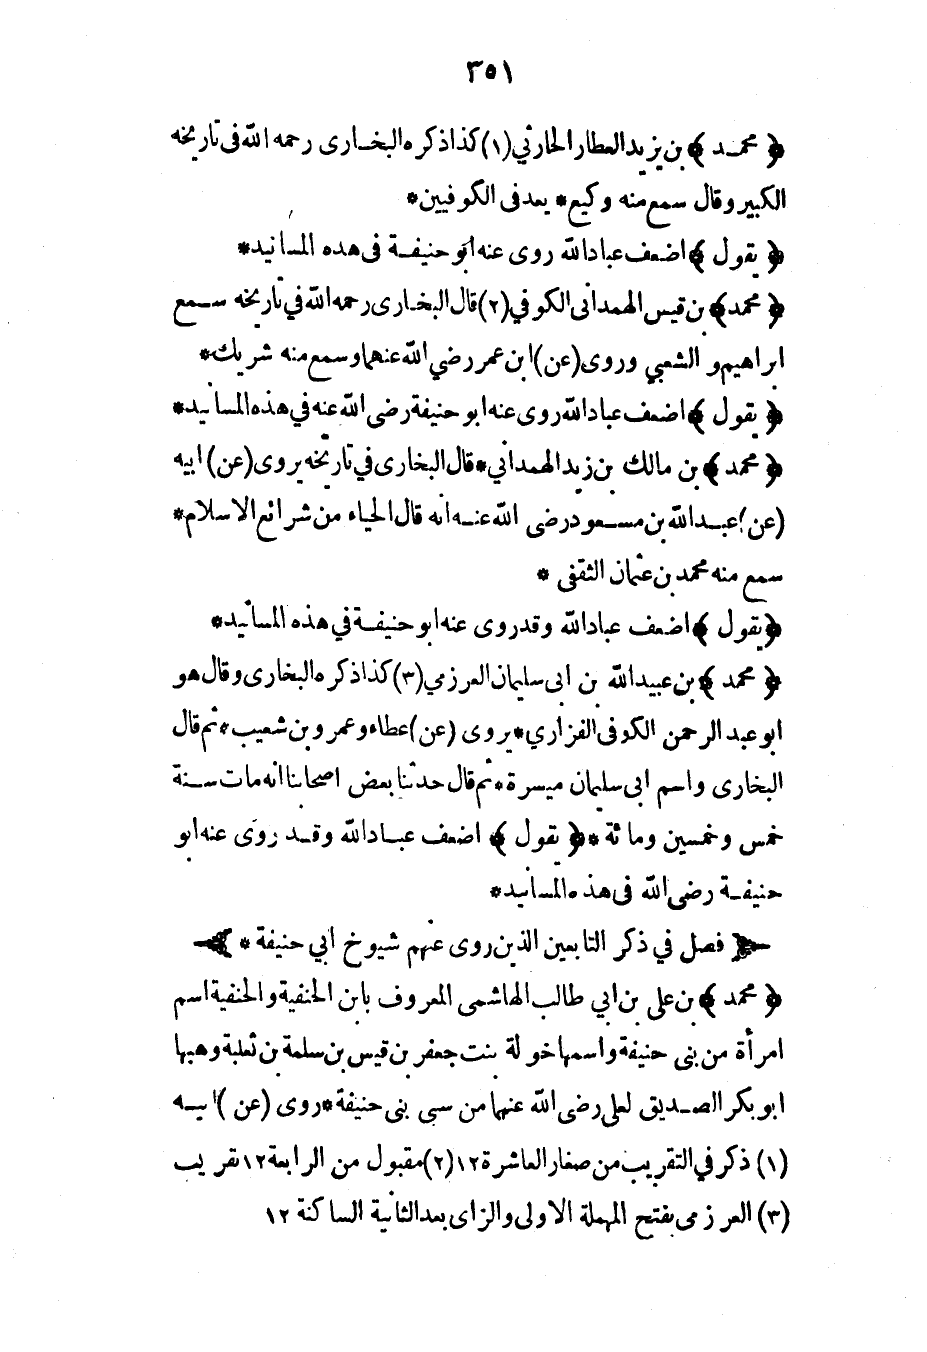 ٣٥١
﴿ محمد ﴾ بن يزيد العطار الحارثي (١) كذا ذكره البخارى رحمه الله فى تاريخه
الكبير وقال سمع منه وكيع * يعد فى الكوفيين *
﴿ يقول ﴾ اضعف عباد الله روى عنه ابو حنيفة فى هذه المسانيد *
﴿ محمد ﴾ بن قيس الهمدانى الكوفي (٢) قال البخارى رحمه الله في تاريخه سمع
ابراهيم و الشعبي وروى (عن) ابن عمر رضي الله عنهما وسمع منه شريك *
﴿ يقول ﴾ اضعف عباد الله روى عنه ابو حنيفة رضى الله عنه في هذه المسانيد *
﴿ محمد ﴾ بن مالك بن زيد الهمداني * قال البخارى في تاريخه يروى (عن) ابيه
(عن) عبد الله بن مسعود رضى الله عنه انه قال الحياء من شرائع الاسلام *
سمع منه محمد بن عثمان الثقفى *
﴿ يقول ﴾ اضعف عباد الله وقد روى عنه ابو حنيفة في هذه المسانيد *
﴿ محمد ﴾ بن عبيد الله بن ابى سليمان العرزمي (٣) كذا ذكره البخارى وقال هو
ابو عبد الرحمن الكوفى الفزاري * يروى (عن) عطاء وعمرو بن شعيب * ثم قال
البخارى واسم ابى سليمان ميسرة * ثم قال حدثنا بعض اصحابنا انه مات سنة
خمس وخمسين ومائة * ﴿ يقول ﴾ اضعف عباد الله وقد روى عنه ابو
حنيفة رضى الله فى هذه المسانيد *
فصل في ذكر التابعين الذين روى عنهم شيوخ ابي حنيفة *
﴿ محمد ﴾ بن على بن ابي طالب الهاشمى المعروف بابن الحنفية والحنفية اسم
امرأة من بنى حنيفة واسمها خولة بنت جعفر بن قيس بن سلمة بن ثعلبة وهبها
ابو بكر الصديق لعلى رضى الله عنهما من سبى بنى حنيفة * روى (عن) ابيه
(١) ذكر في التقريب من صغار العاشرة ١٢ (٢) مقبول من الرابعة ١٢ تقريب
(٣) العرزمى بفتح المهملة الاولى والزاى بعد الثانية الساكنة ١٢